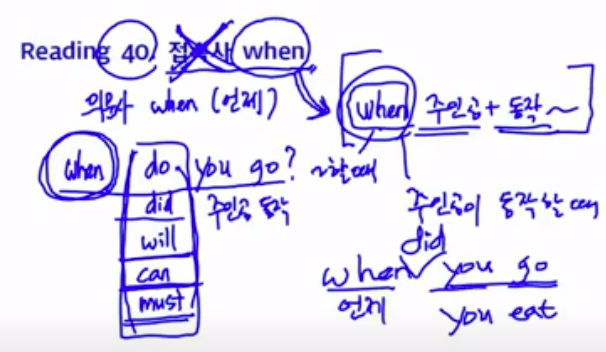 Reading 40. 접속사 when
의문사 when (언제?)
when 주인공 + 동작 ~
when do you go?
~할 때
did 주인공 동작
will
can
must
주인공이 동작할 때
did
when you go
언제 you eat